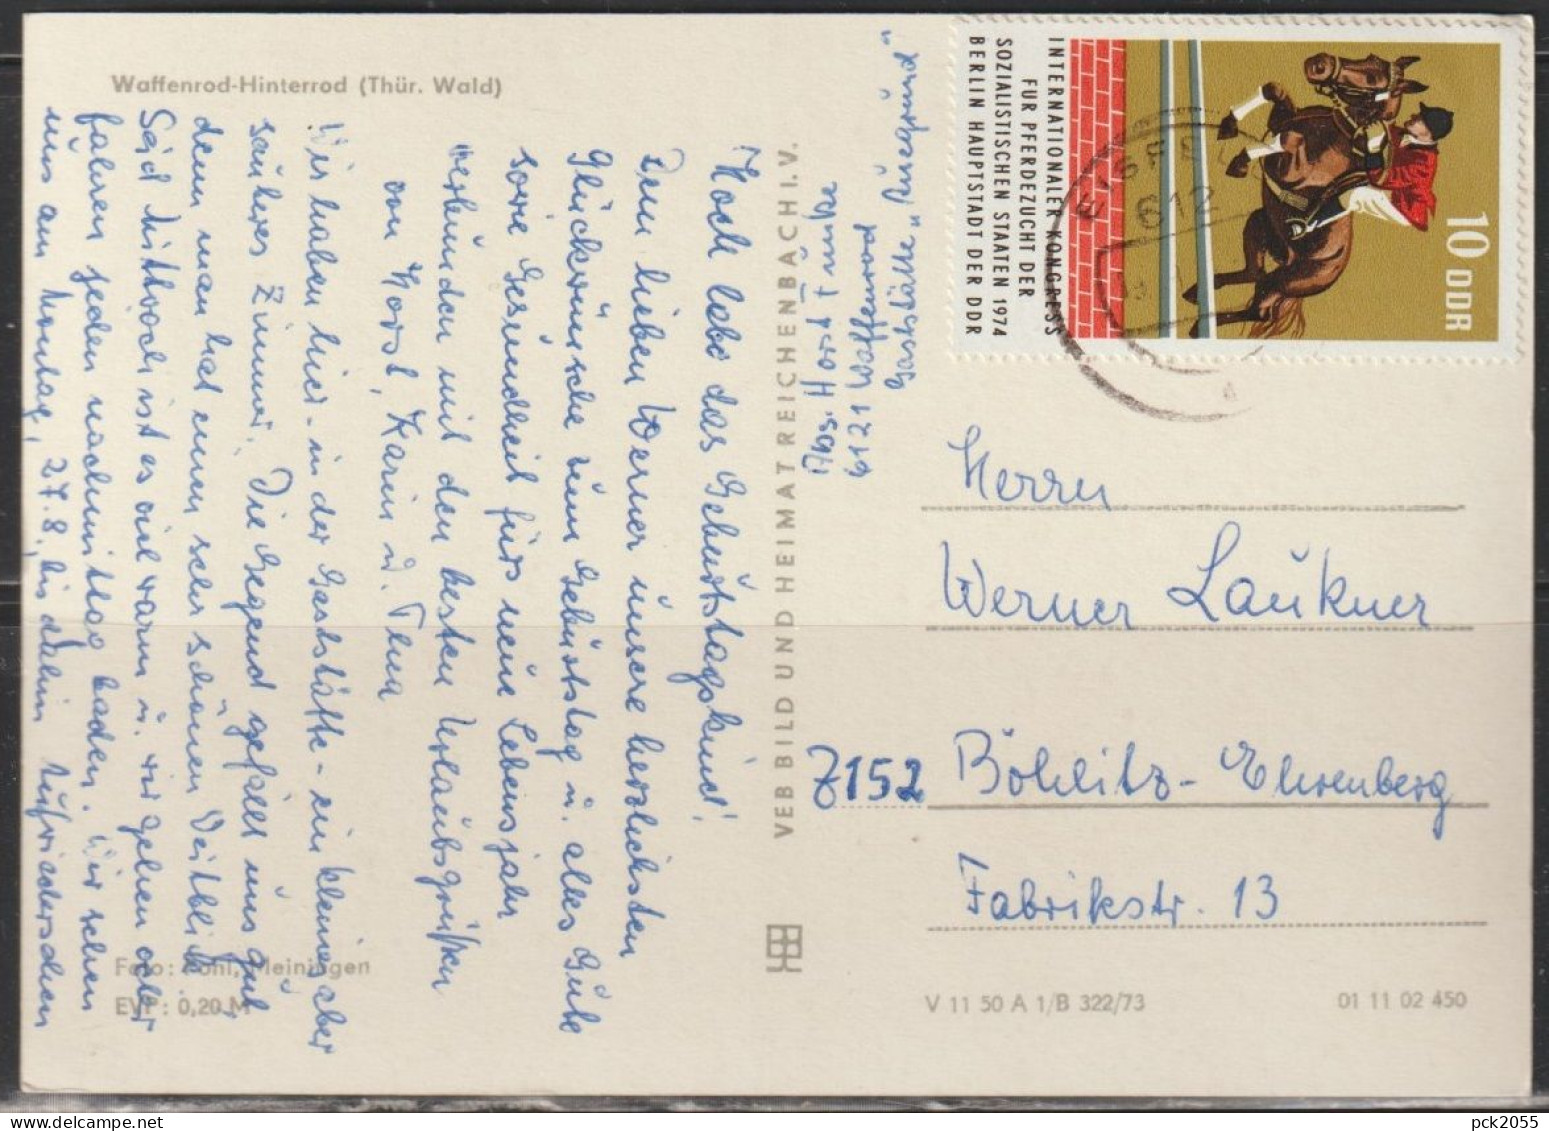 Waffenrod-Hinterrod (Thür. Wald)
Hoch lebe das Geburtstagskind!
Dem lieben Werner unsere herzlichsten
Glückwünsche zum Geburtstag u. alles Gute
sowie Gesundheit fürs neue Lebensjahr
verbunden mit den besten Urlaubsgrüßen
von Horst, Karin u.
Wir haben hier - in der Gaststätte - ein kleines aber
sauberes Zimmer. Die Gegend gefällt uns gut
denn man hat einen sehr schönen Weitblick.
Seid Mittwoch ist es viel warm u. wir gehen oder
fahren jeden nachmittag baden. Wir sehen
uns am Montag, 27.8., bis dahin
Foto: Pohl, Meiningen
EVP: 0,20 M
VEB BILD UND HEIMAT REICHENBACH I. V.
Abs. Horst
6121 Waffenrod
Gaststätte
INTERNATIONALER KONGRESS
FÜR PFERDEZUCHT DER
SOZIALISTISCHEN STAATEN 1974
BERLIN HAUPTSTADT DER DDR
10 DDR
EISFELD
612
Herrn
Werner Laukner
7152 Böhlitz-Ehrenberg
Fabrikstr. 13
V 11 50 A 1/B 322/73
01 11 02 450
pck2055